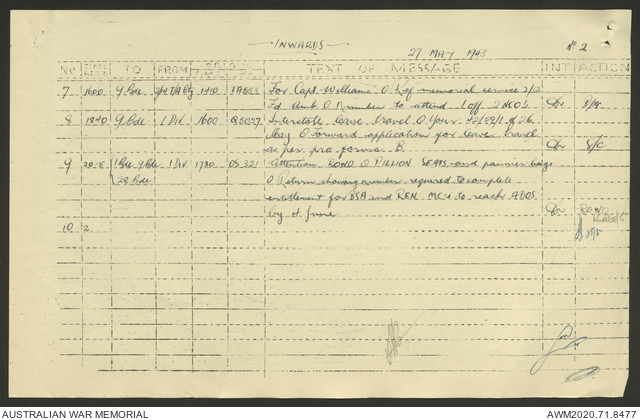 INWARDS
27 MAY 1943
No 2
NO TIME TO FROM ORIG TEXT OF MESSAGE INT ACTION
7 1600 9 Bde 1410 For Capt Williams O Ref memorial service 2/2
Fd Amb O Number to attend 1 off 2 NCO's
8 1840 9 Bde 1 Div 1600 Interstate leave travel O Your of 26
May O Forward application for leave travel
as per pro forma. B. S/C
9 2015 1 Bde 9 Bde 1 Div 1730 OS321 Attention BOND O PILLION SEATS and pannier bags
28 Bde O Return showing number required to complete
entitlement for BSA and REN MC's to reach ADOS
by 4 June BOND
10 2
AUSTRALIAN WAR MEMORIAL
AWM2020.71.8477